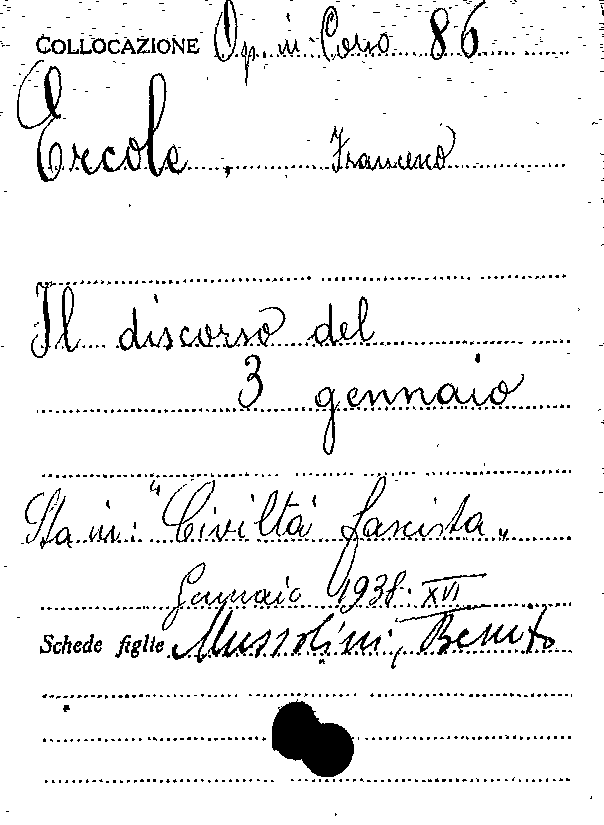 COLLOCAZIONE Op. in Corso 86
Ercole, Francesco
Il discorso del
3 gennaio
Sta in: "Civiltà fascista"
Gennaio 1938. XVI
Schede figlie Mussolini, Benito